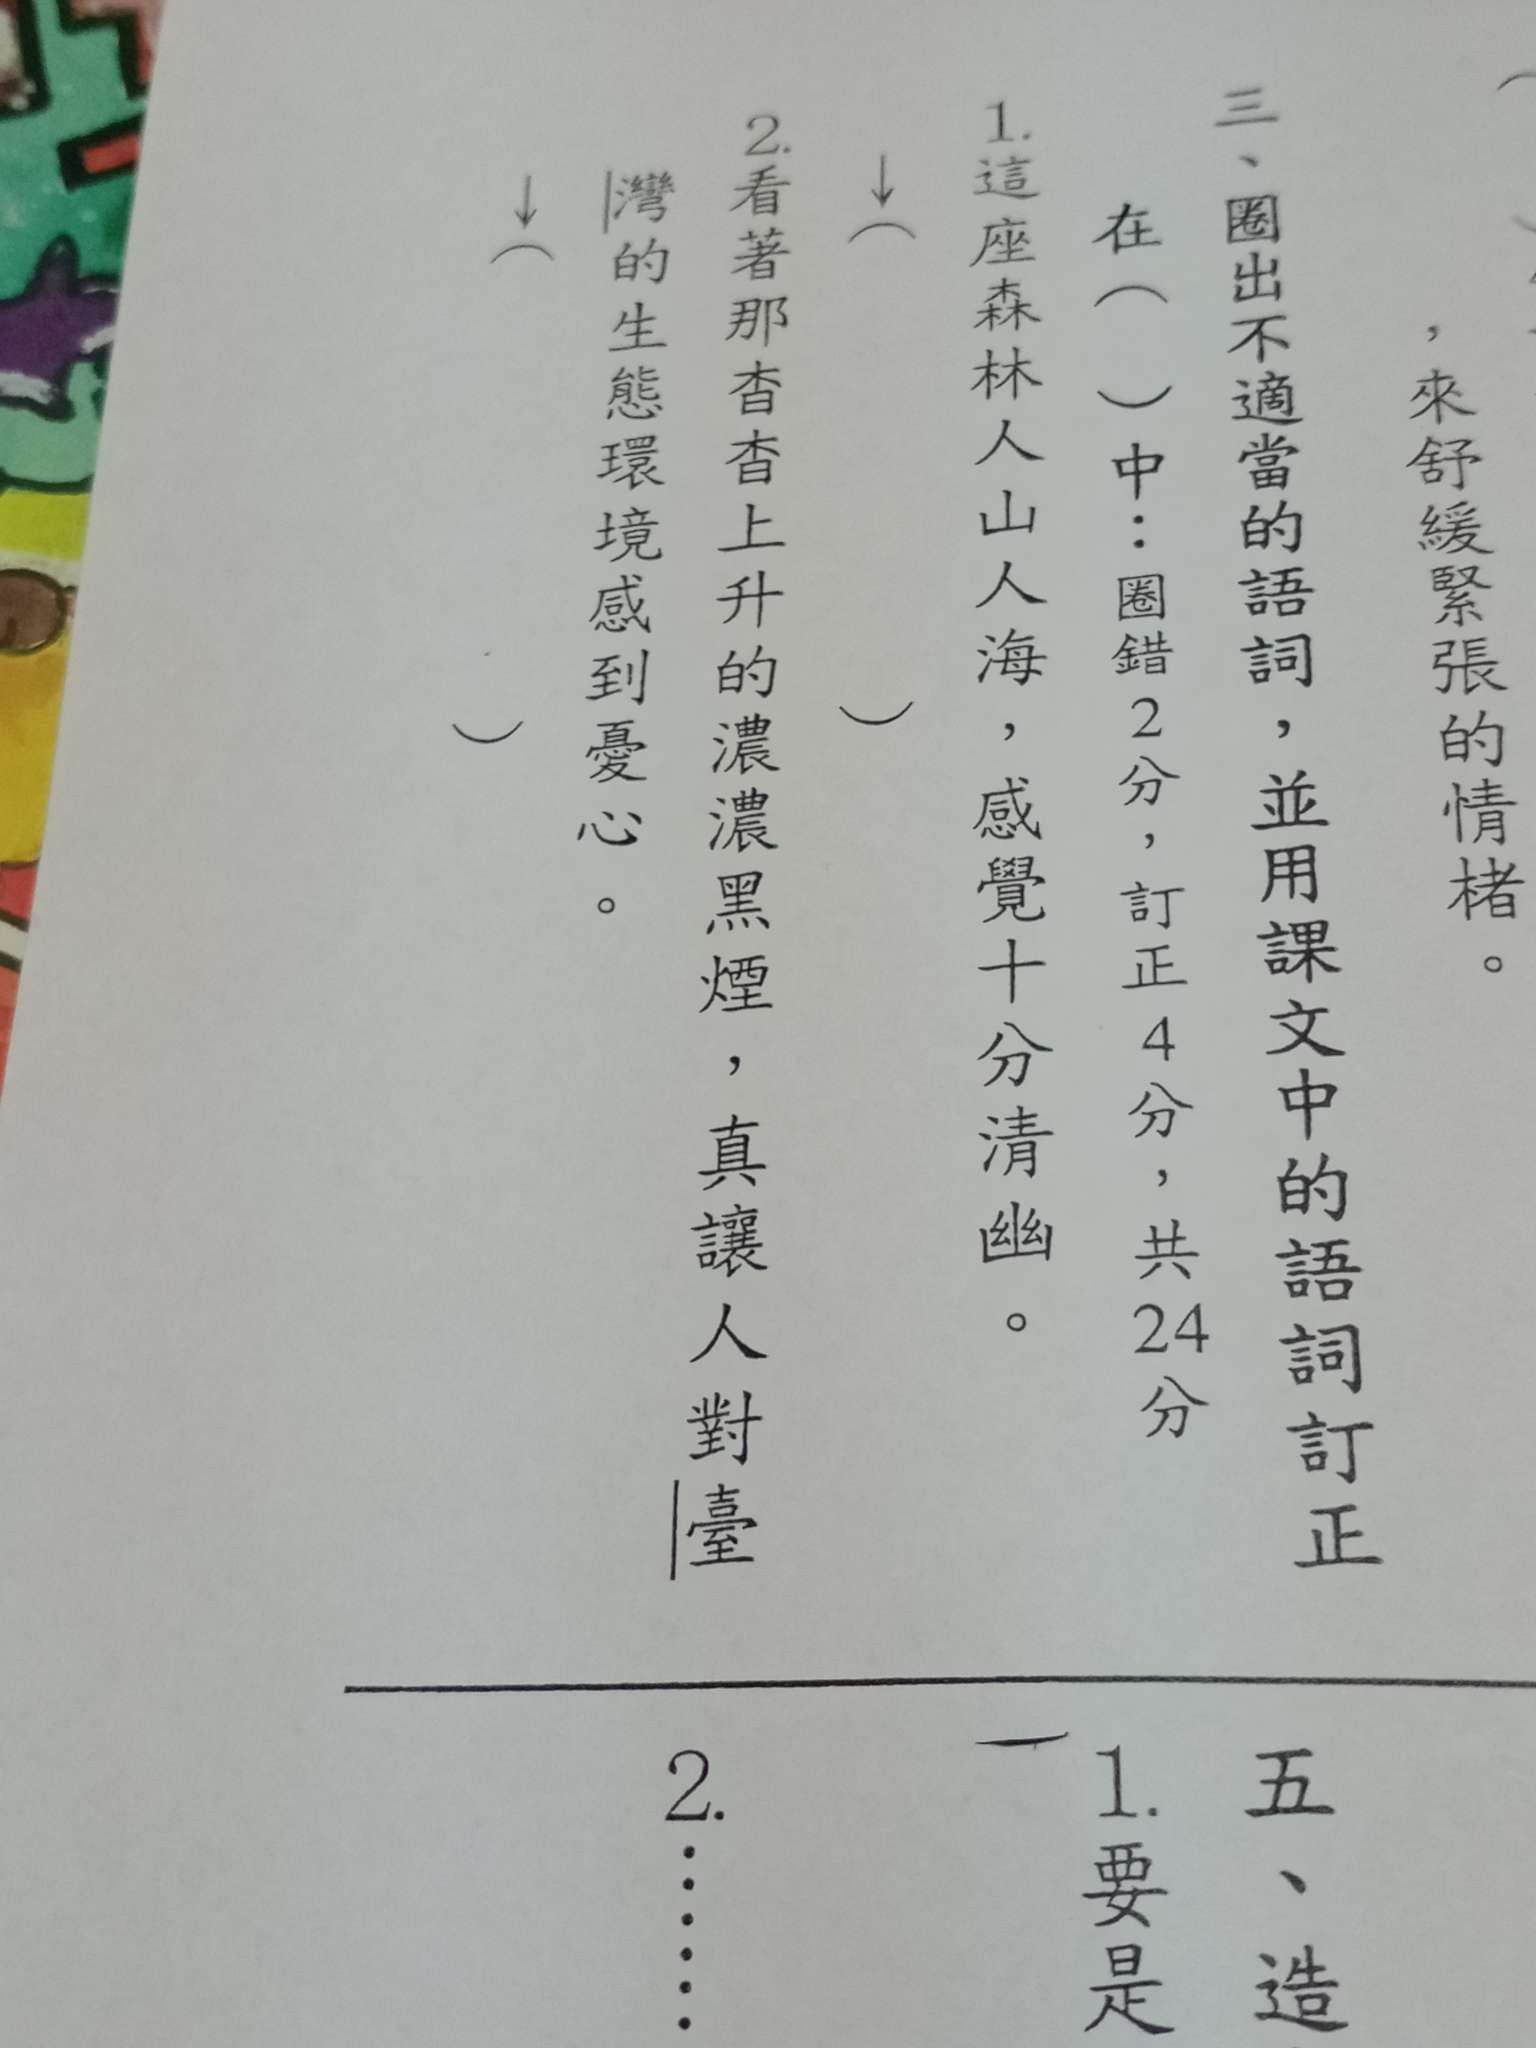 ，來舒緩緊張的情楮。
三、圈出不適當的語詞，並用課文中的語詞訂正
在（　）中：圈錯2分，訂正4分，共24分
1.這座森林人山人海，感覺十分清幽。
↓（　　　）
2.看著那杳杳上升的濃濃黑煙，真讓人對臺
灣的生態環境感到憂心。
↓（　　　）
五、造
1.要是
2.……